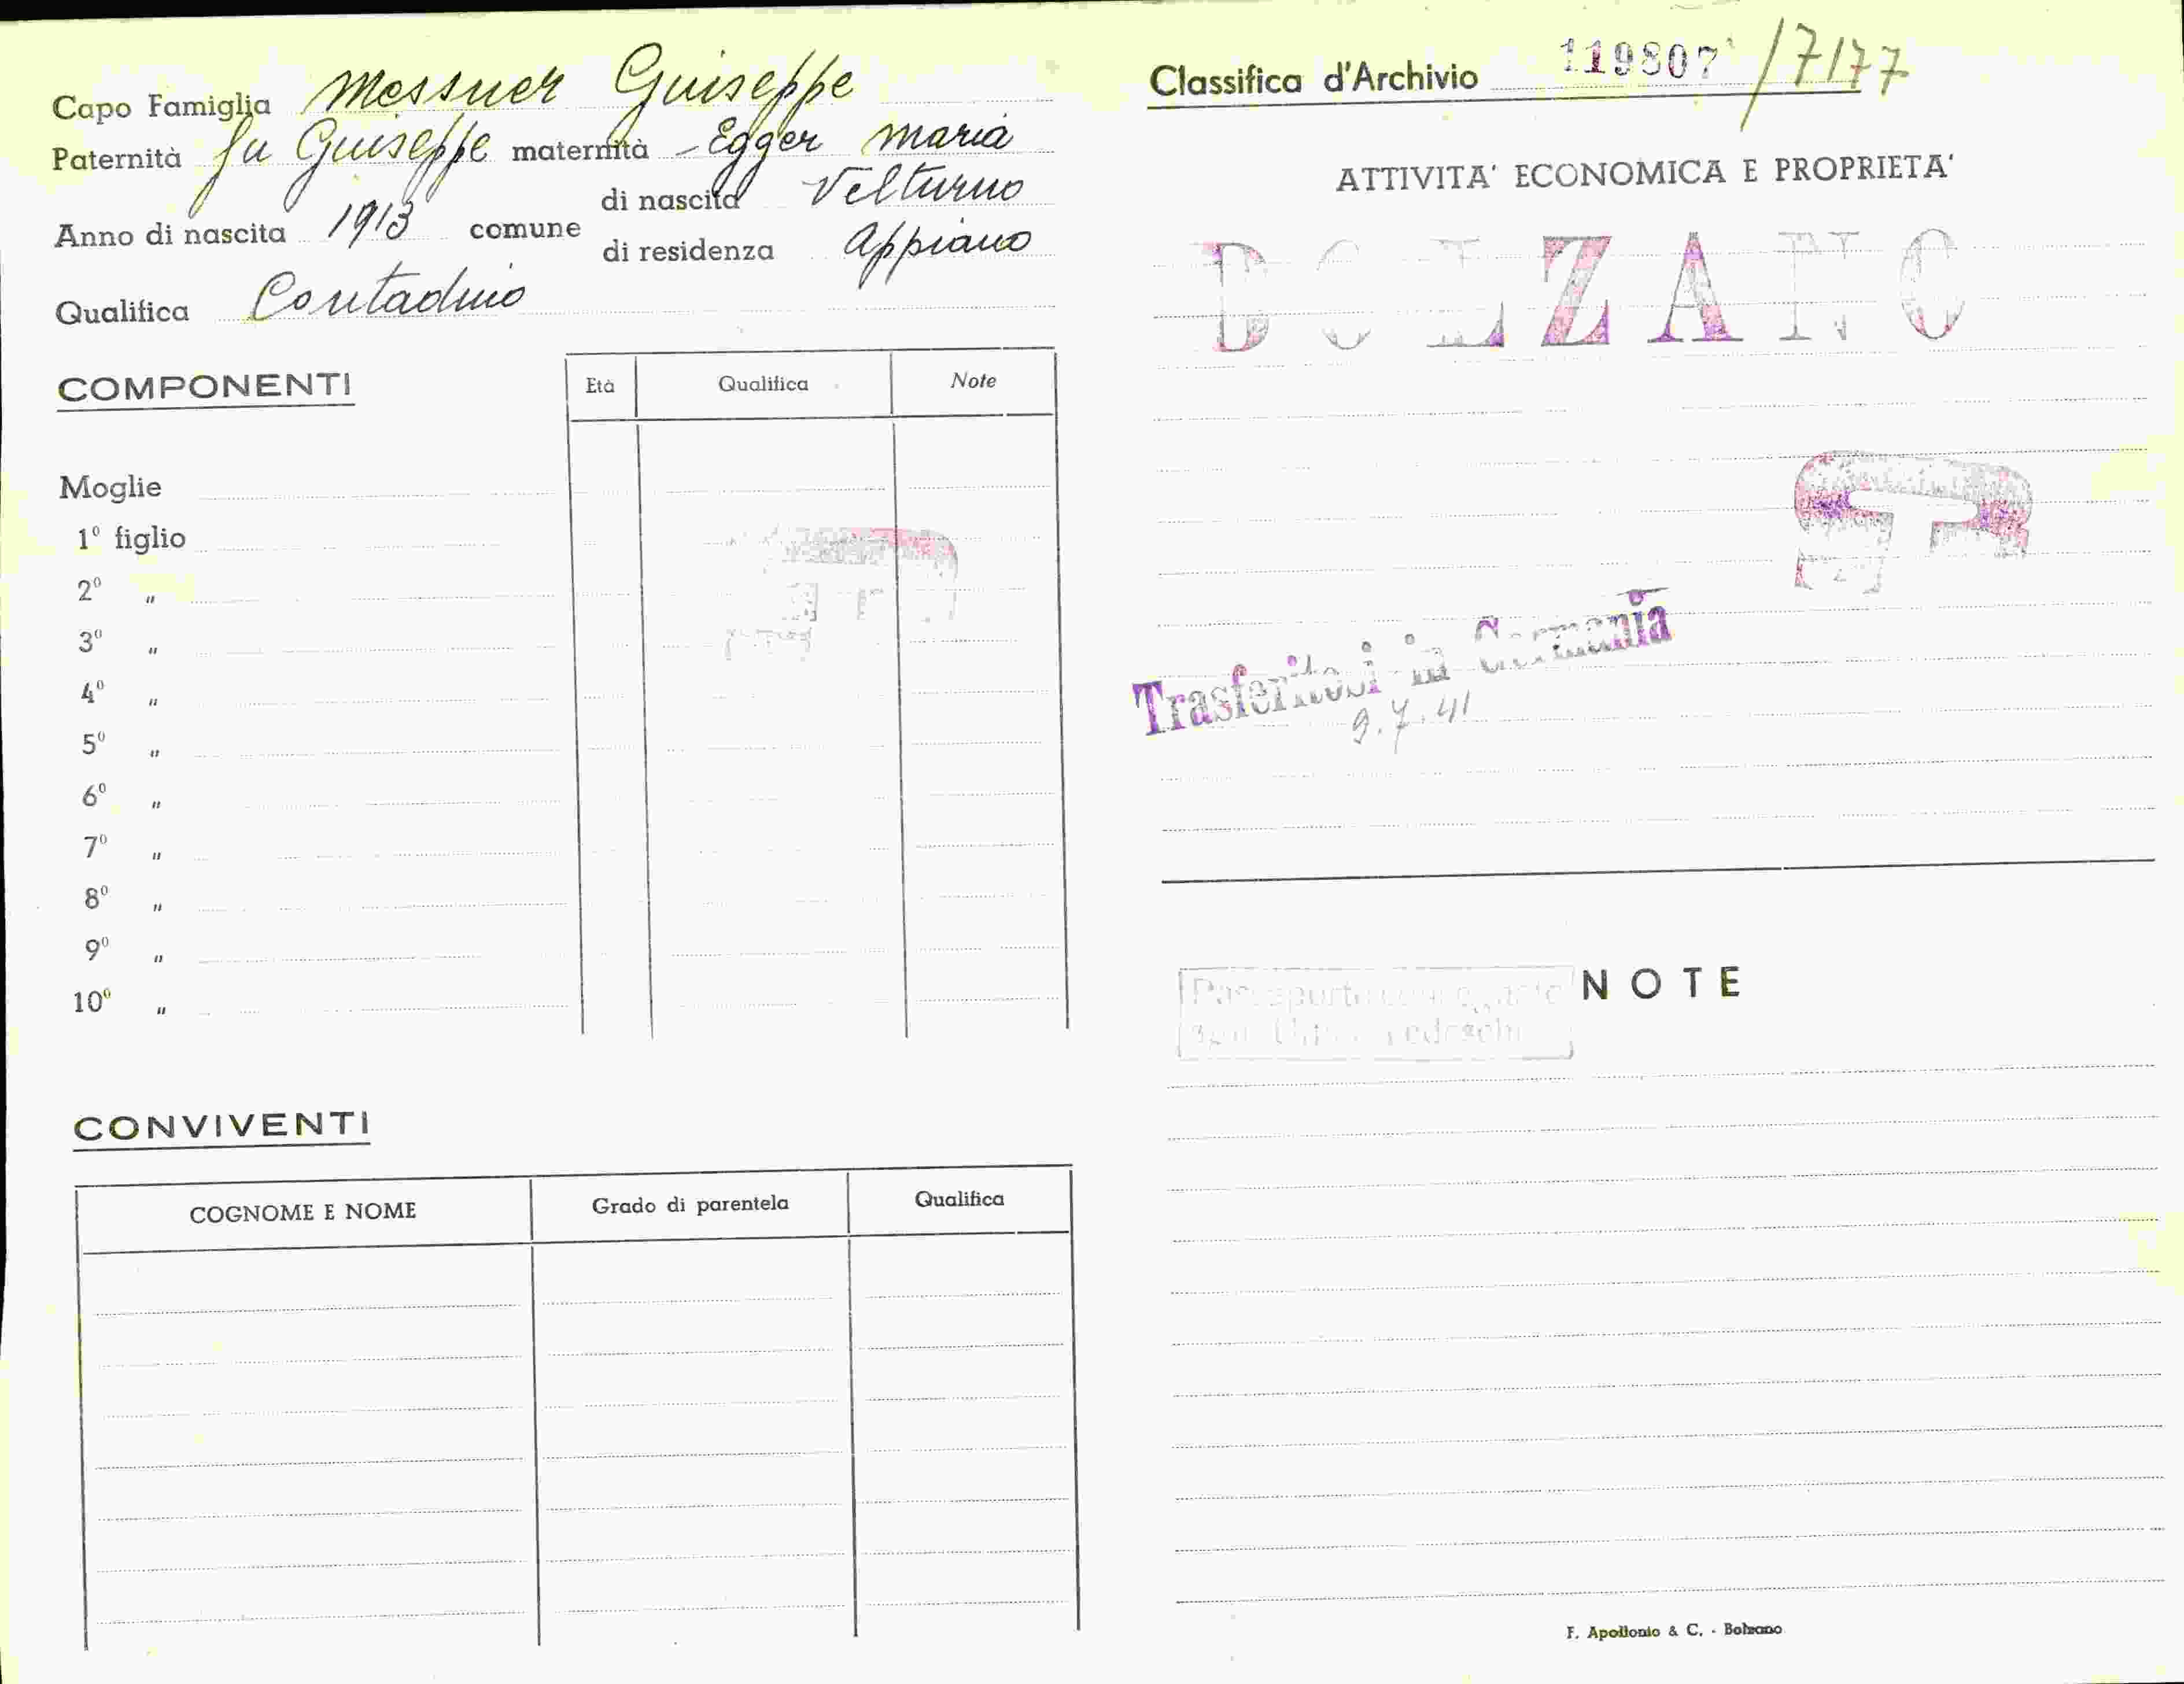 Capo Famiglia Messner Guiseppe
Paternità fu Guiseppe maternità - Egger Maria
Anno di nascita 1913 comune di nascita Velturno
di residenza Appiano
Qualifica Contadino
COMPONENTI
Età Qualifica Note
Moglie
1º figlio
2º "
3º "
4º "
5º "
6º "
7º "
8º "
9º "
10º "
CONVIVENTI
COGNOME E NOME Grado di parentela Qualifica
Classifica d'Archivio 119807 /7177
ATTIVITA' ECONOMICA E PROPRIETA'
BOLZANO
Trasferitosi in Germania
9.7.41
NOTE
F. Apollonio & C. - Bolzano